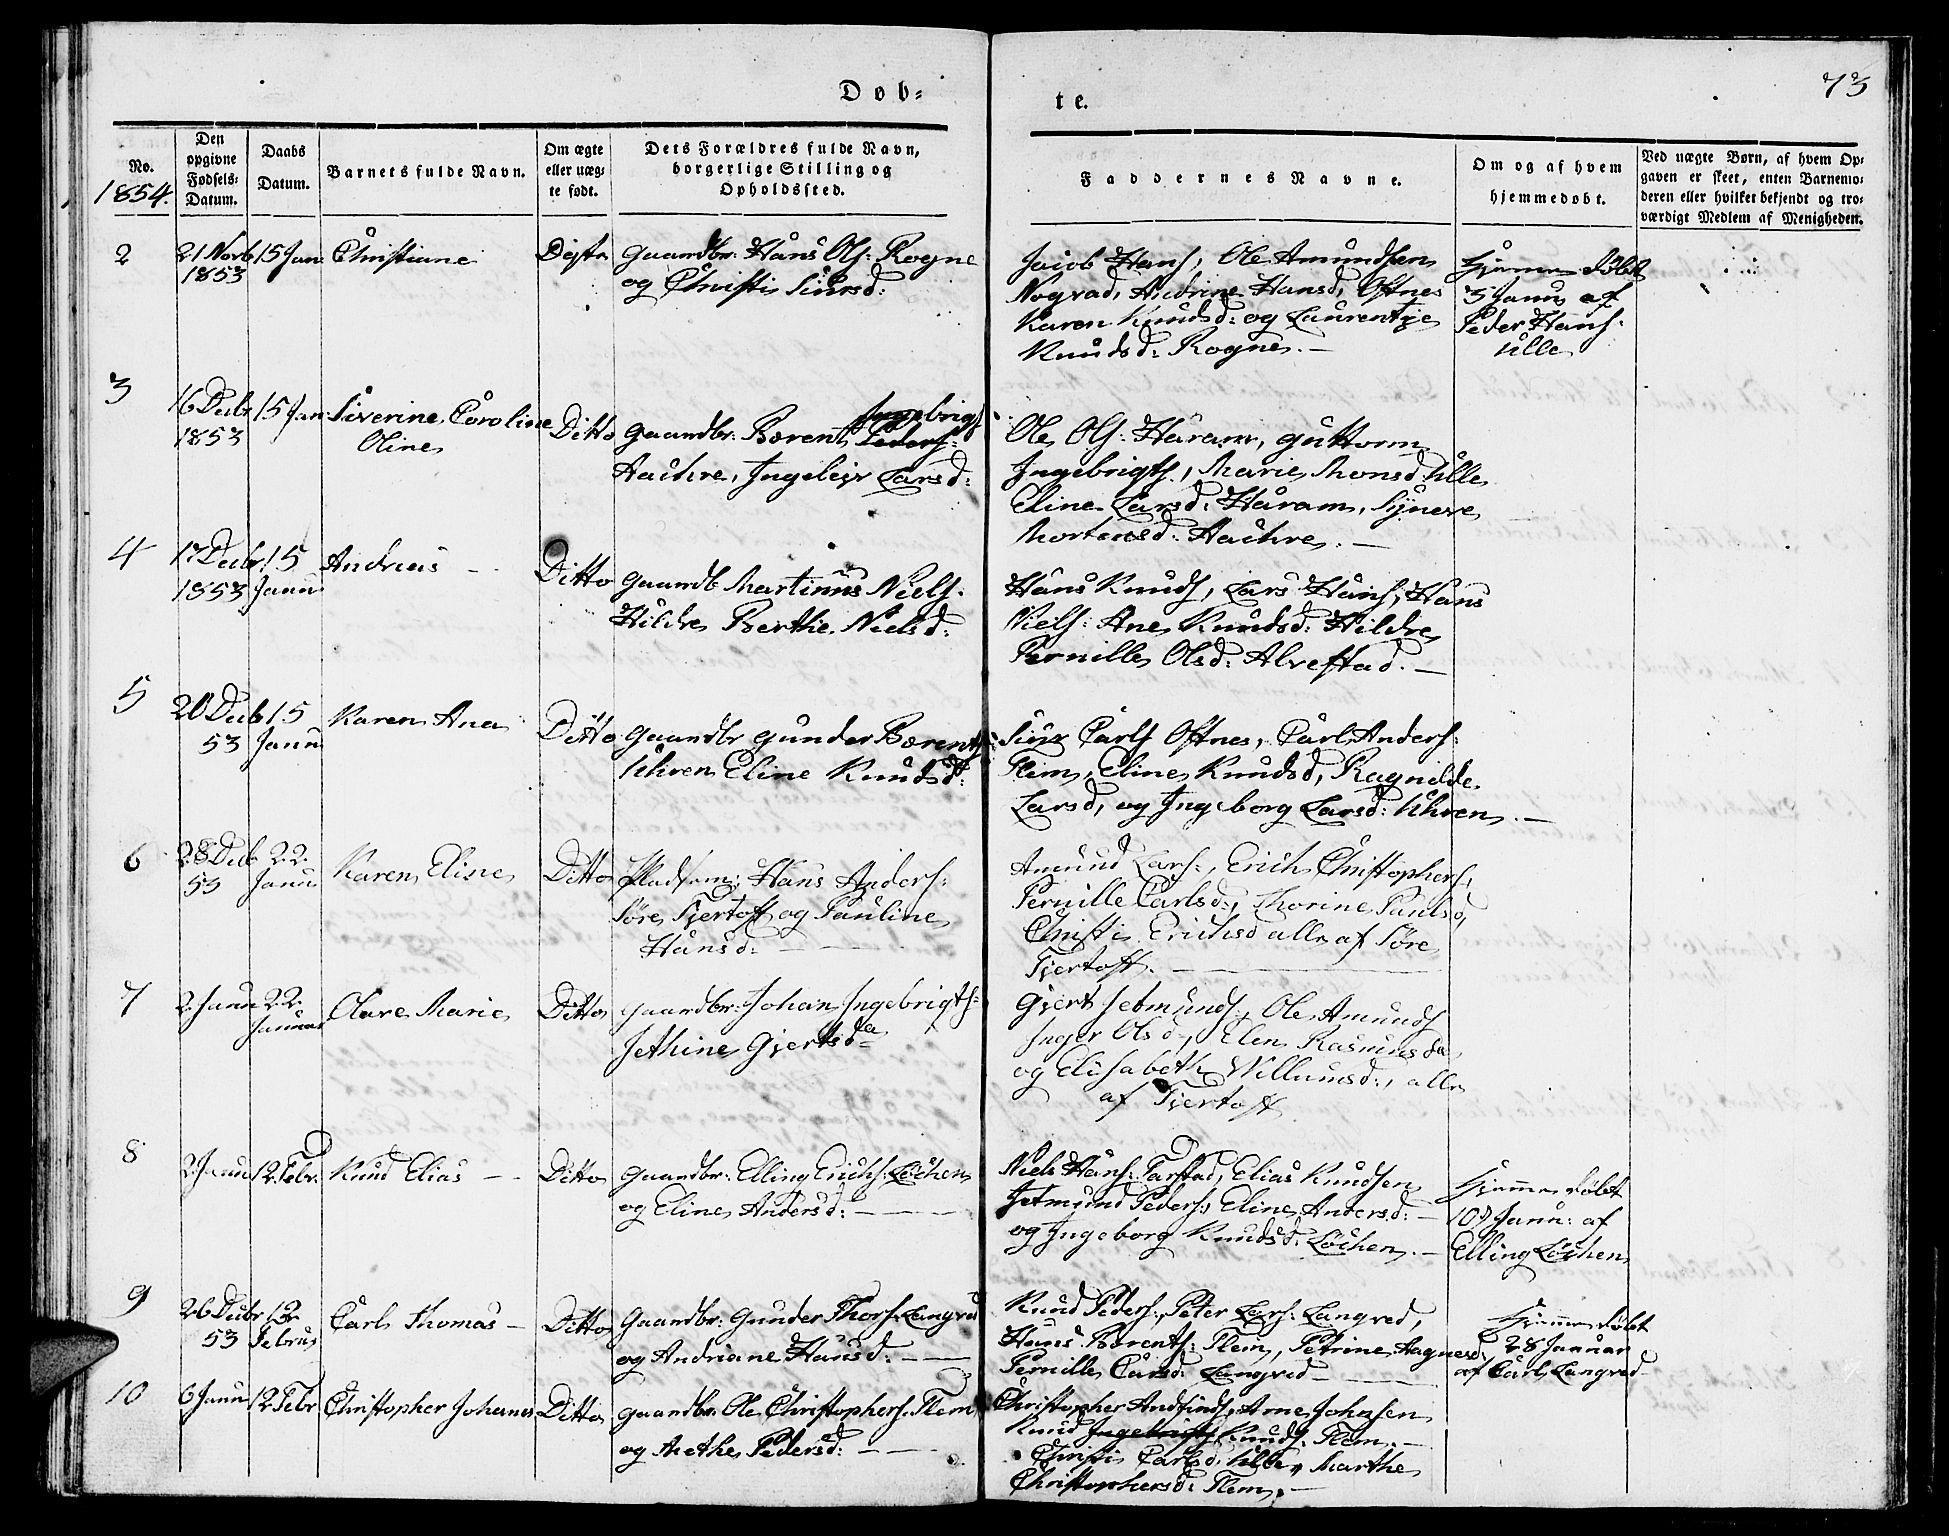 73
Døb-
te.
No.
1854.
Den opgivne Fødsels-Datum.
Daabs Datum.
Barnets fulde Navn.
Om ægte eller uæg-te født.
Dets Forældres fulde Navn, borgerlige Stilling og Opholdssted.
Faddernes Navne.
Om og af hvem hjemmedøbt.
Ved uægte Børn, af hvem Op-gaven er skeet, enten Barnemo-deren eller hvilket bekjendt og tro-værdigt Medlem af Menigheden.
2
21 Novb 1853
15 Jan
Christiane
Gaardbr: Hans Ols: Rogne
og Christi Siursd:
Jacob Hans, Ole Amundsen
Nogvad, Andrine Hansd, Oftnes
Karen Knudsd: og Laurentze
Knudsd: Rogne. —
Hjemme døbt
5 Janu af
Peder Hans:
Ulle
3
16 Decbr 1853
15 Jan
Siverine Caroline
Oline
Ditto
Gaardbr: Berent Ingebrigts
Haehre, Ingeleiv Larsd:
Ole Ols: Haram, Guttorm
Ingebrigts, Marie Monsd. Ulle
Eline Larsd: Haram, Synere
Mortensd: Haehre. —
4
17 Decbr 1853
15 Janu
Andreas —
Ditto
Gaardb Martinus Niels.
Hildre Berthe Nielsd:
Hans Knuds, Lars Hans, Hans
Niels: Ane Knudsd: Hildre
Pernille Olsd: Alvestad. —
5
20 Decb 53
15 Janu
Karen Ana
Ditto
Gaardbr Gunder Berents:
Uhren Eline Knudsd:
Siur Carls Oftnes, Carl Anders:
Flem, Eline Knudsd, Ragnilde
Larsd, og Ingeborg Larsd: Uhren. —
6
28 Decb 53
22 Janu
Karen Eline
Ditto
Pladsem: Hans Anders:
Søre Fjertoft og Pauline
Hansd: —
Amund Lars:, Erich Christophers,
Pernille Carlsd:, Thorine Paulsd,
Christi Erichsd alle af Søre
Fjertoft. —
7
2 Janu
22 Januar
Olave Marie
Ditto
Gaardbr: Johan Ingebrigts:
Jethine Gjertsda
Gjert Jetmunds, Ole Amunds
Inger Olsd, Elen Rasmusda
og Elisabeth Willumsd:, alle
af Fjertoft
8
2 Janu
12 Febr.
Knud Elias — -
Ditto
Gaardbr: Elling Erichs: Løchen
og Eline Andersd: —
Niels Hans: Farstad, Elias Knudsen
Jetmund Peders:, Eline Andersd: —
og Ingeborg Knudsd: Løchen. —
Hjemme døbt
10 Janu: af
Elling Løchen
9
26 Decbr 53
12 Februar
Carl Thomas —
Ditto
Gaardbr: Gunder Thors: Langved
og Andriane Hansd: —
Knud Peders:, Peter Lars: Langved,
Hans Berents: Flem, Petrine Hagnesd,
Pernille Carsd: Langved —
Hjemme døbt
28 Januar
af Carl Langved
10
6 Janu
12 Febr
Christopher Johannes
Ditto
Gaardbr: Ole Christophers: Flem
og Aethe Pedersd: —
Christopher Andfinds, Arne Johnsen
Knud Knuds: Flem —
Christi Carlsd Ulle, Marthe
Christophersd: Flem. —